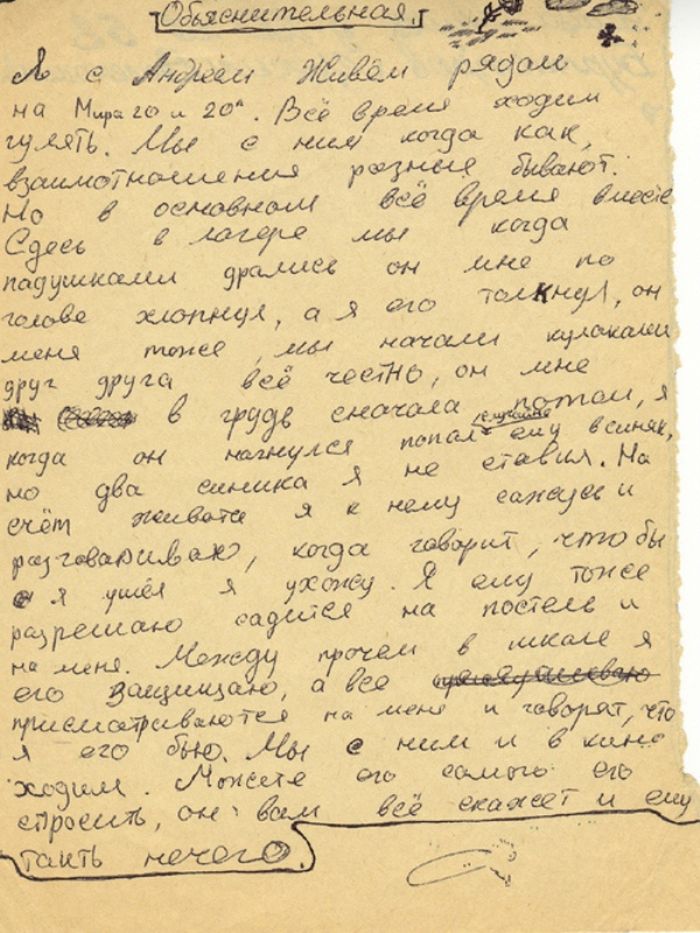 Обьяснительная.
Я с Андреем живём рядом
на Мира 20 и 20ª. Всё время ходим
гулять. Мы с ним когда как,
взаимотношения разные бывают.
Но в основном всё время вместе
Сдесь в лагере мы когда
падушками дрались он мне по
голове хлопнул, а я его толкнул, он
меня тоже, мы начали кулаками
друг друга всё честно, он мне
в грудь сначала потом, я
когда он нагнулся попал случайно ему в синяк,
но два синика я не ставил. На
счёт живота я к нему сажусь и
разговариваю, когда говорит, что бы
я ушёл я ухожу. Я ему тоже
разрешаю садится на постель и
на меня. Между прочем в школе я
его защищаю, а все
присматриваются на меня и говорят, что
я его бью. Мы с ним и в кино
ходим. Можете его самого его
спросить, он вам всё скажет и ему
таить нечего.